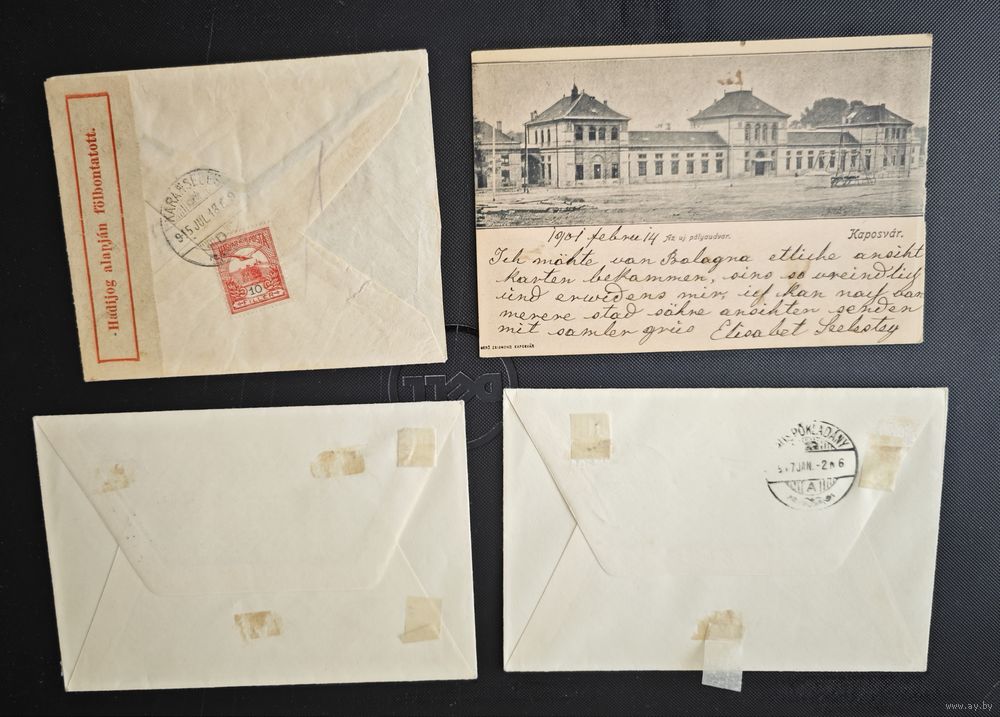 Hadijog alapján fölbontatott.
KARÁNSEBES
915 JUL. 13
MAGYAR KIR. POSTA
10
FILLÉR
1901 febru 14
Az uj pályaudvar.
Kaposvár.
Ich möhte van Bolagna etliche ansiht
karten bekammen, sino so vreindlig
und erwidens mir, ich kan nay van
merere stad sähre ansihten senden
mit samler grüs Elisabet
KAPOSVÁR.
DELL
PÜSPÖKLADÁNY
917 JAN. -2 N 6
A
www.ay.by